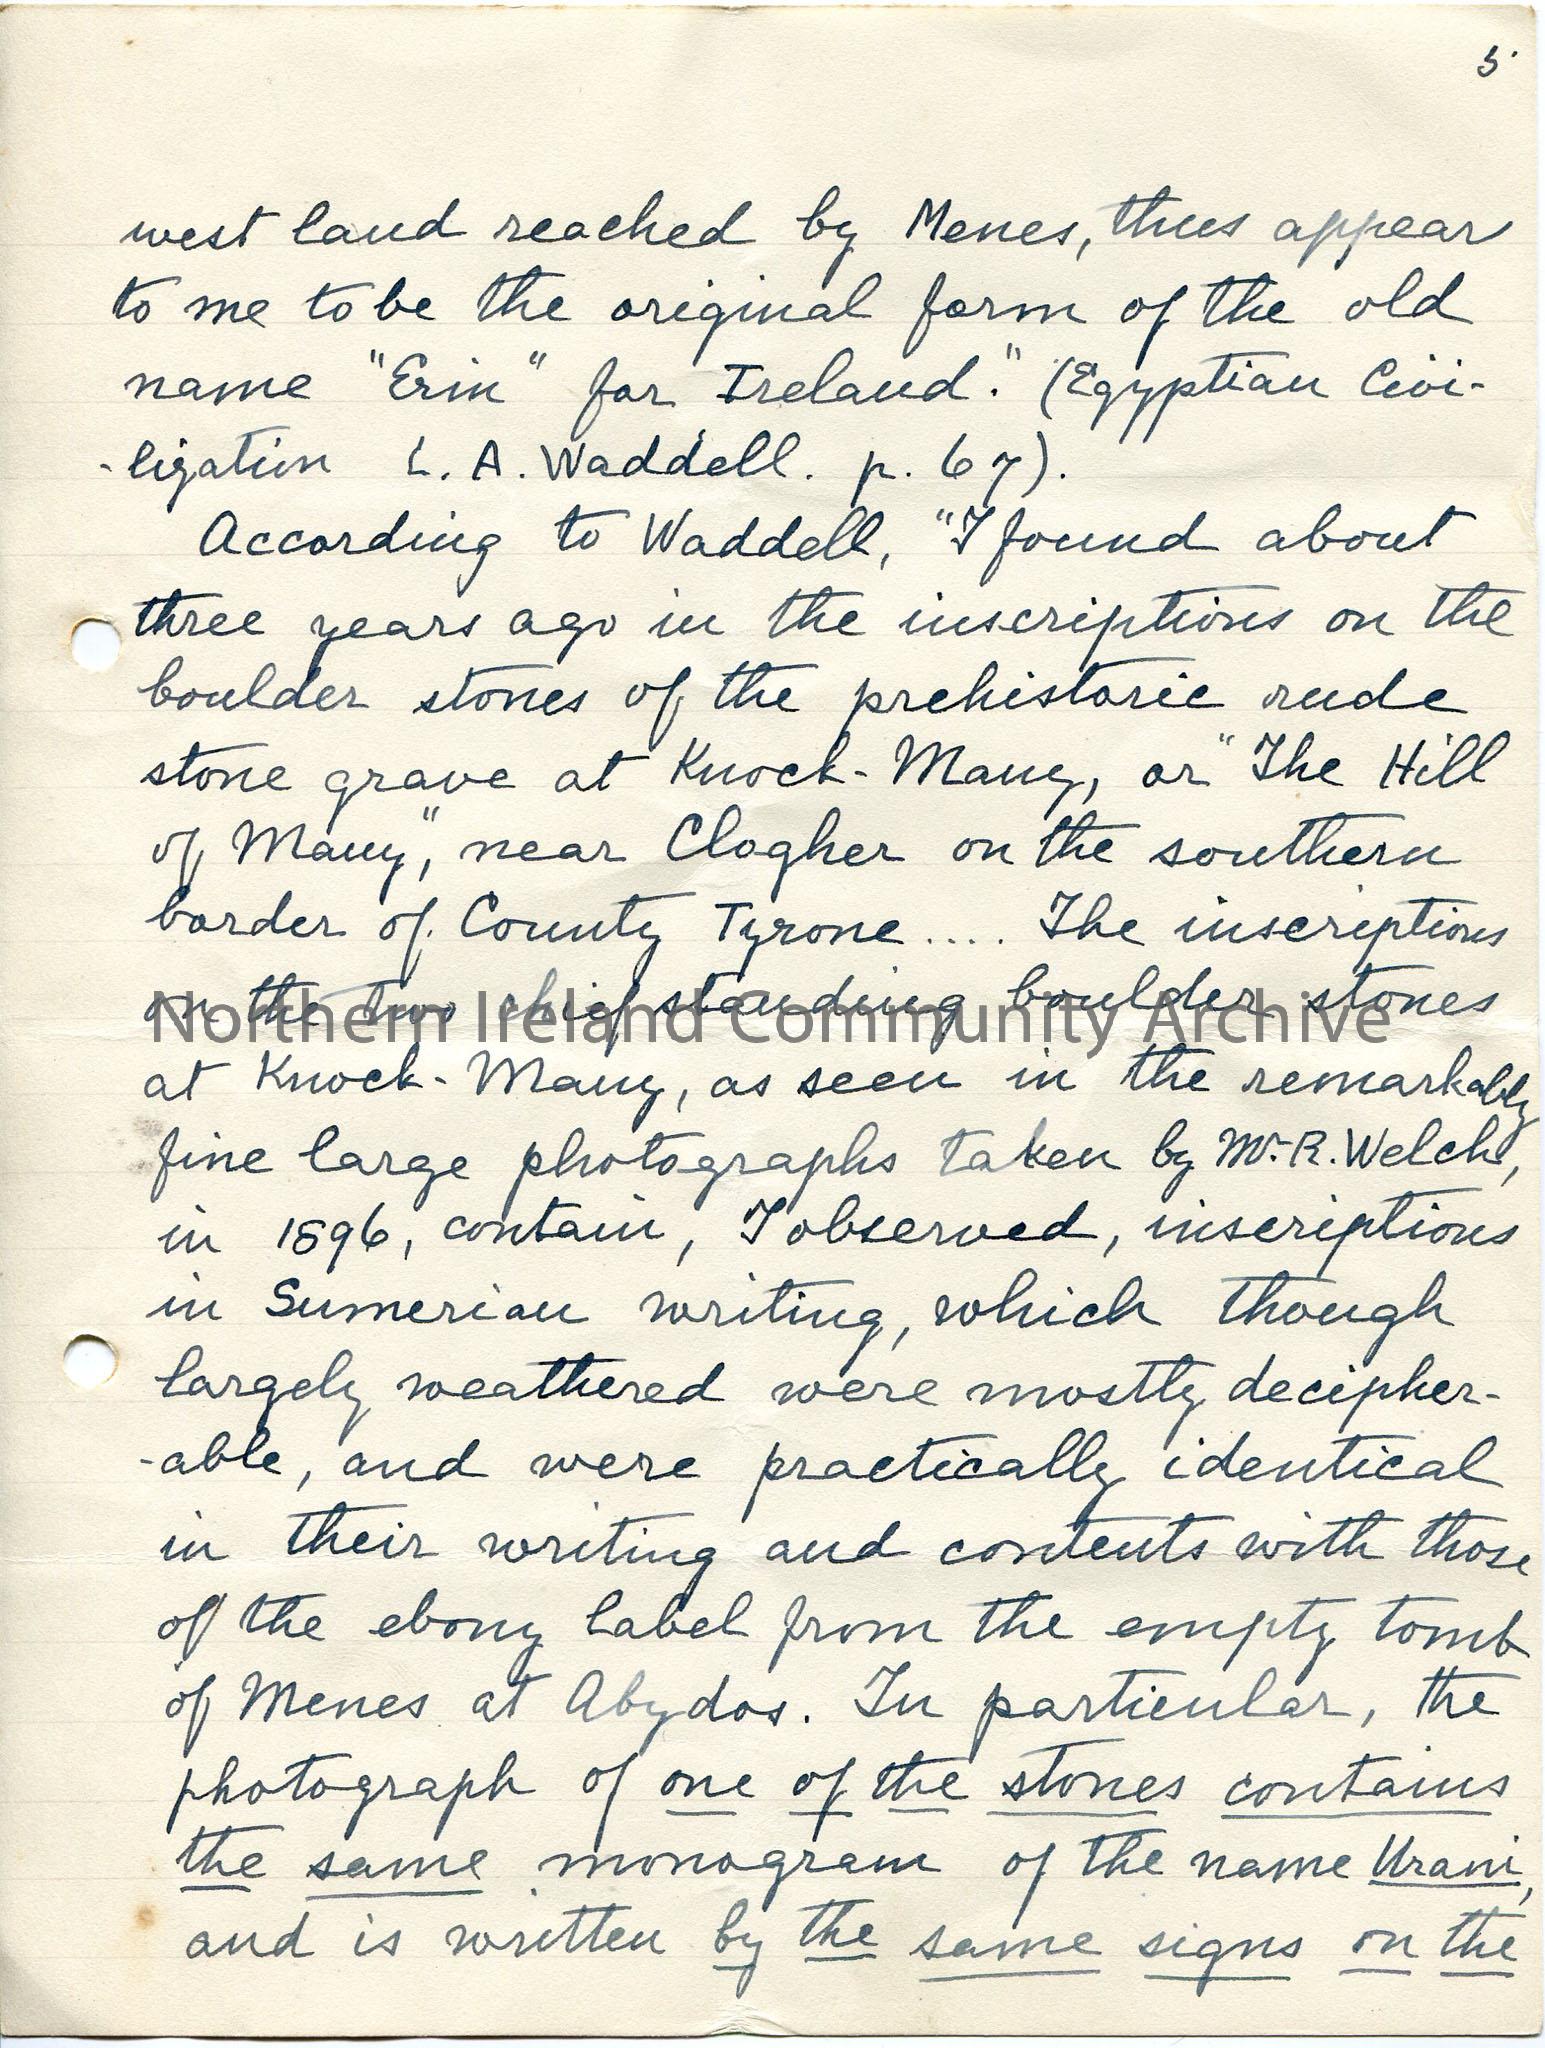 5.
west land reached by Menes, thus appears
to me to be the original form of the old
name "Erin" for Ireland." (Egyptian Civi-
-lization L. A. Waddell. p. 67).
According to Waddell, "I found about
three years ago in the inscriptions on the
boulder stones of the prehistoric rude
stone grave at Knock-Many, or "The Hill
of Many", near Clogher on the southern
border of County Tyrone.... The inscriptions
on the two chief standing boulder stones
Northern Ireland Community Archive
at Knock-Many, as seen in the remarkably
fine large photographs taken by Mr. R. Welch,
in 1896, contain, I observed, inscriptions
in Sumerian writing, which though
largely weathered were mostly decipher-
-able, and were practically identical
in their writing and contents with those
of the ebony label from the empty tomb
of Menes at Abydos. In particular, the
photograph of one of the stones contains
the same monogram of the name Urani,
and is written by the same signs on the